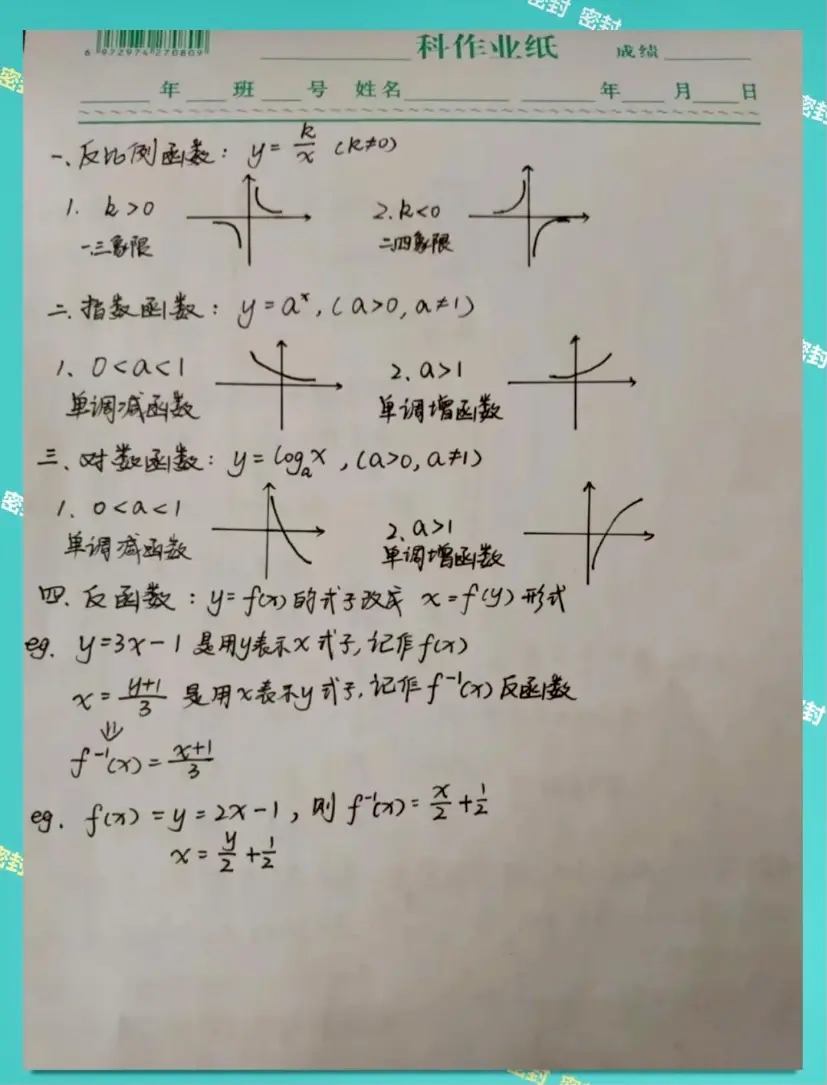 密封 密封
6 972974 270809
科作业纸 成绩
年 班 号 姓名 年 月 日
一、反比例函数: y = k/x (k≠0)
1. k>0 2. k<0
一.三象限 二.四象限
二、指数函数: y = aˣ, (a>0, a≠1)
1、0<a<1 2、a>1
单调减函数 单调增函数
三、对数函数: y = logₐx , (a>0, a≠1)
1. 0<a<1 2、a>1
单调减函数 单调增函数
四、反函数: y=f(x)的式子改成 x=f(y)形式
eg. y=3x-1 是用y表示x式子,记作f(x)
x = (y+1)/3 是用x表示y式子,记作f⁻¹(x)反函数
⇓
f⁻¹(x) = (x+1)/3
eg. f(x) = y = 2x-1, 则 f⁻¹(x) = x/2 + 1/2
x = y/2 + 1/2